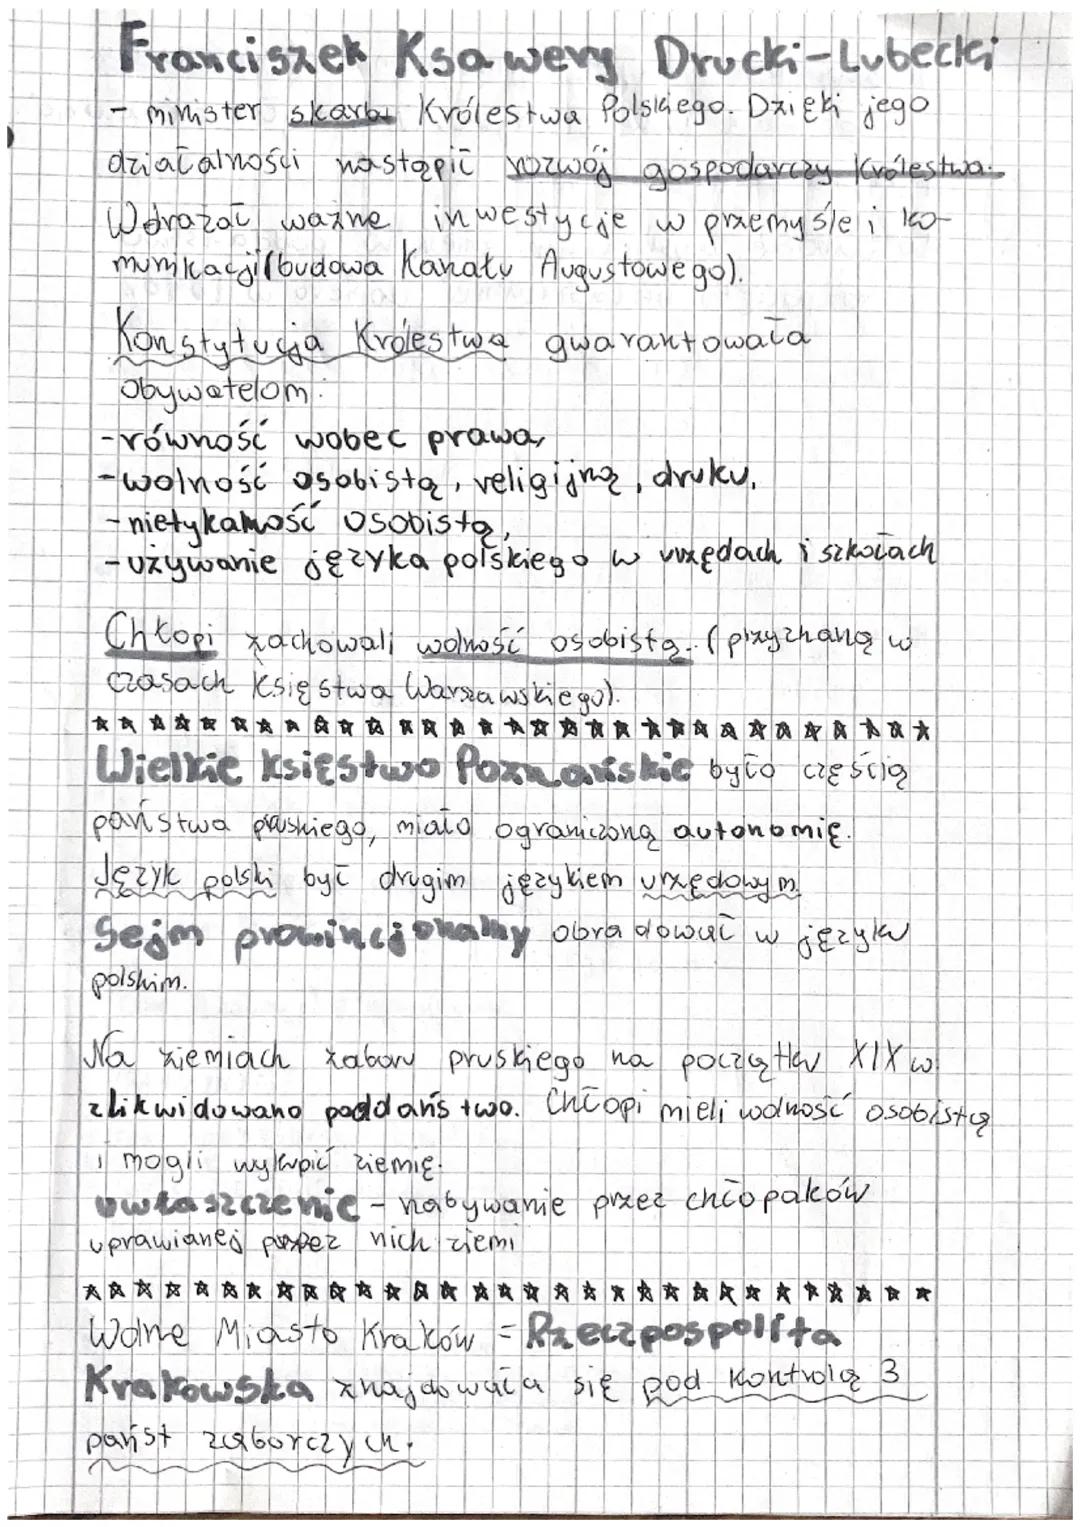 Franciszek Ksawery Drucki-Lubecki
- minister skarbu Królestwa Polskiego. Dzięki jego
działalności nastąpił rozwój gospodarczy Królestwa.
Wdrażał ważne inwestycje w przemyśle i ko-
munikacji (budowa Kanału Augustowego).
Konstytucja Królestwa gwarantowała
obywatelom:
- równość wobec prawa,
- wolność osobistą, religijną, druku,
- nietykalność osobistą,
- używanie języka polskiego w urzędach i szkołach
Chłopi zachowali wolność osobistą. (przyznaną w
czasach Księstwa Warszawskiego).
Wielkie Księstwo Poznańskie było częścią
państwa pruskiego, miało ograniczoną autonomię.
Język polski był drugim językiem urzędowym
Sejm prowincjonalny obradował w języku
polskim.
Na ziemiach zaboru pruskiego na początku XIX w.
zlikwidowano poddaństwo. Chłopi mieli wolność osobistą
i mogli wykupić ziemię.
uwłaszczenie - nabywanie przez chłopaków
uprawianej przez nich ziemi
Wolne Miasto Kraków = Rzeczpospolita
Krakowska znajdowała się pod kontrolą 3
państ zaborczych.